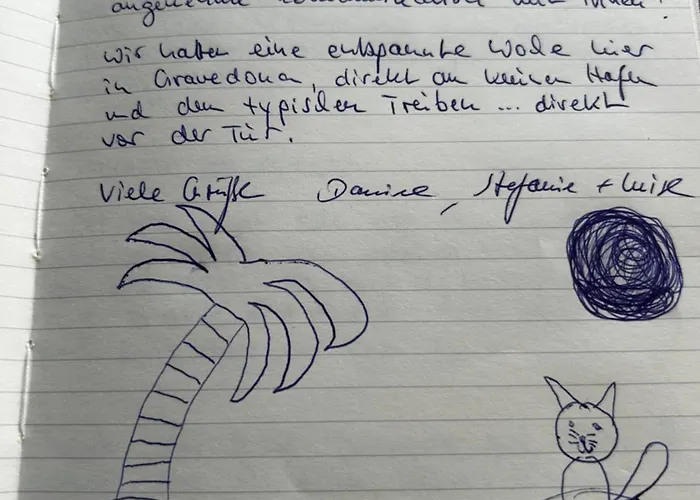 angenehme Kommunikation mit Ihnen!
Wir haben eine entspannte Woche hier
in Gravedona, direkt am kleinen Hafen
und dem typischen Treiben ... direkt
vor der Tür.
Viele Grüße Danice, Stefanie + Luise